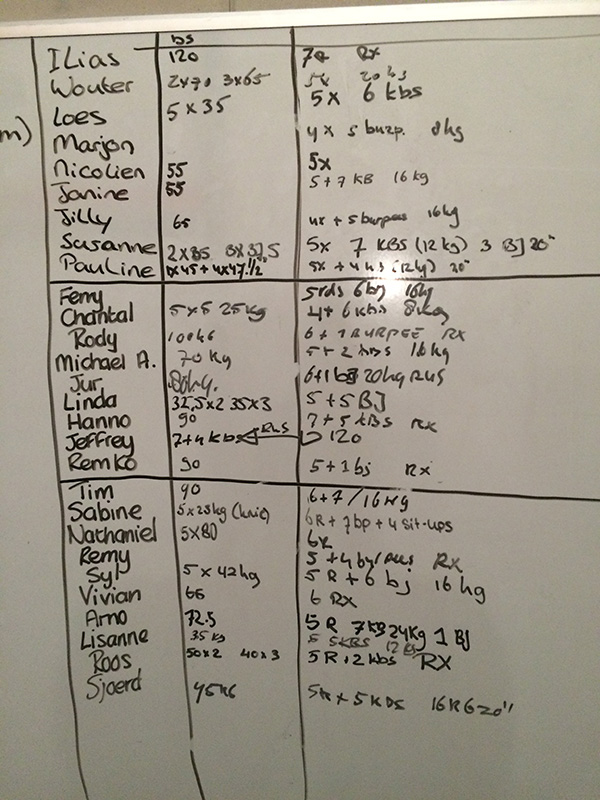 m)
bs
ILias 120 7R RX
Wouter 2x70 3x65 5x 20kg
Loes 5 x 35 5x 6 kbs
Marjon 4x 5 burp. 8kg
Nicolien 55 5x
Janine 55 5+7 KB 16kg
Jilly 65 4x + 5 burpees 16kg
Susanne 2x35 3x37,5 5x 7 KBS (12kg) 3 BJ 20"
Pauline 1x45 + 4x47.½ 5x + 4 (12kg) 20"
Ferry 5rds 6bj 16kg
Chantal 5x5 25kg 4+ 6 kbs 8kg
Rody 100kg 6 + 1 BURPEE RX
Michael A. 70 Kg 5+2 kbs 16kg
Jur 80kg. 6+1 bj 20kg Rus
Linda 32,5x2 35x3 5+5 BJ
Hanno 90 7+5 kBS RX
Jeffrey 7+4 kbs Rus 120
Remko 90 5+1 bj Rx
Tim 90 6+7 / 16kg
Sabine 5x25kg (knie) 6R + 7bp + 4 sit-ups
Nathaniel 5x80 6R
Remy 5 + 4 RX
Syl 5 x 42kg 5 R + 6 bj 16 kg
Vivian 65 6 RX
Arno 72.5 5 R 7KB 24Kg 1 BJ
Lisanne 35 kg 5 5KBS 12kg
Roos 50x2 40x3 5 R+2 kbs RX
Sjoerd 45KG 5R x 5 KBS 16KG 20"